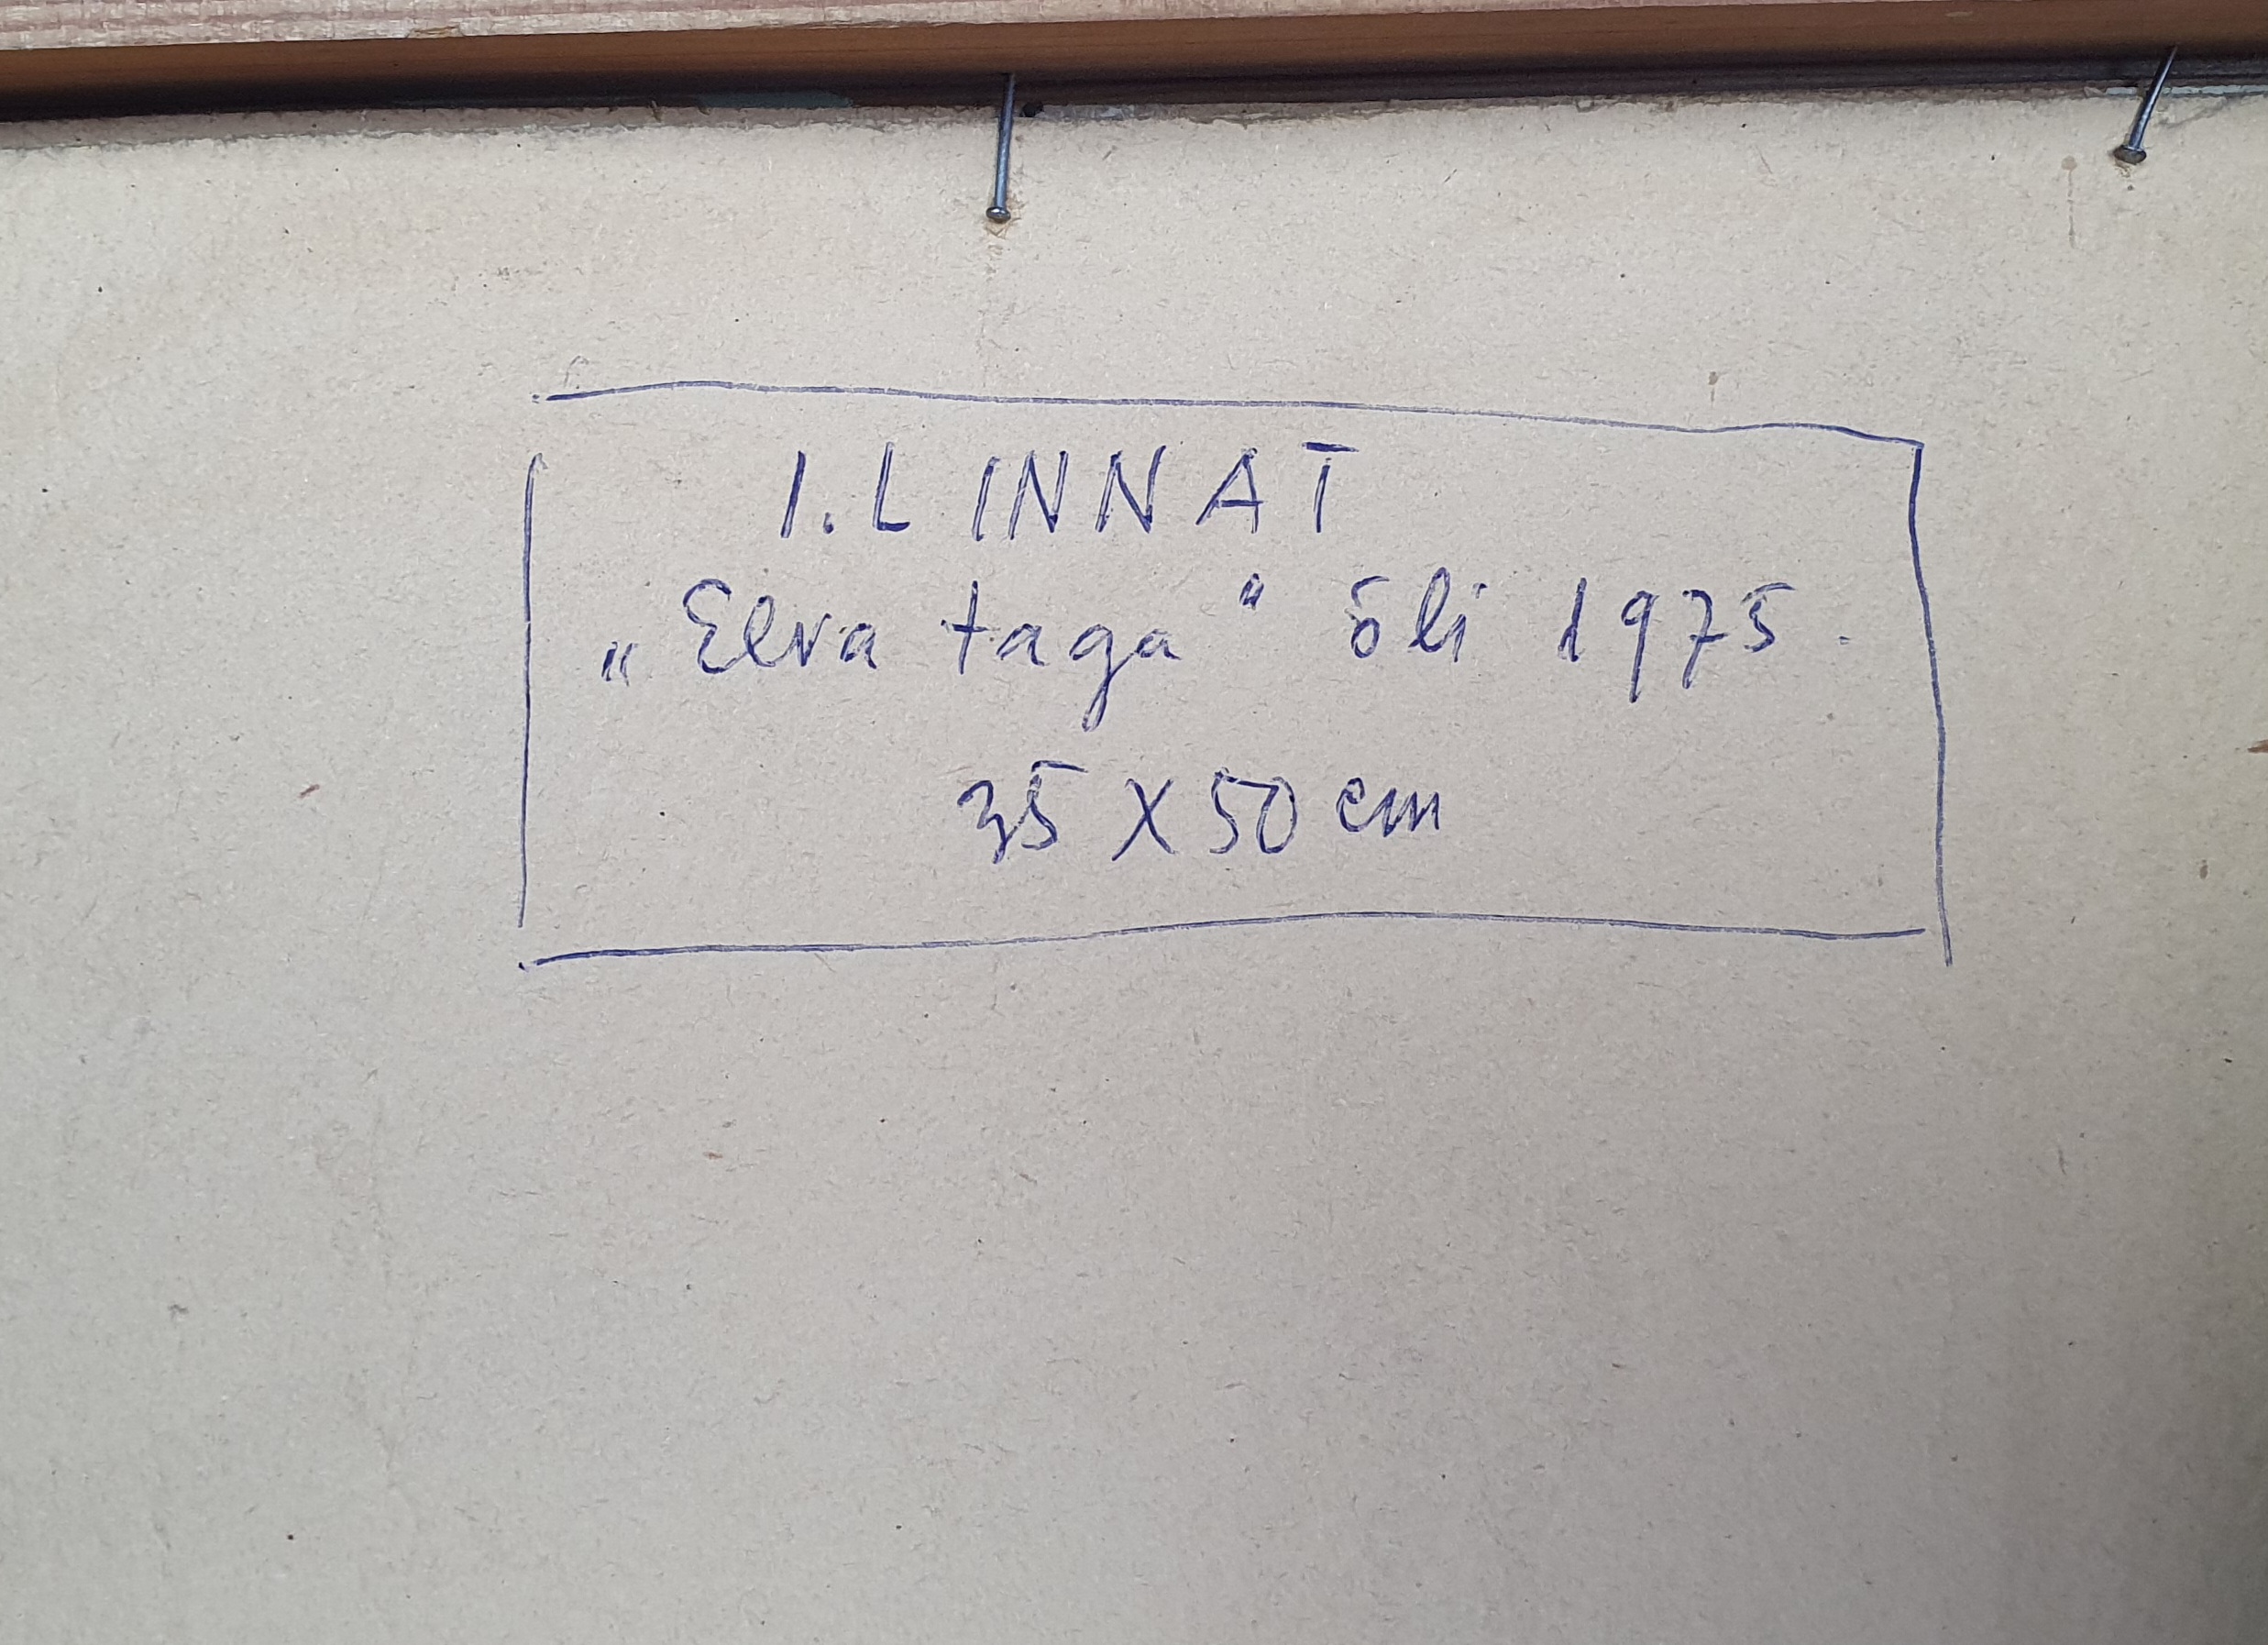 I. LINNAT
„Elva taga“ õli 1975.
35 X 50 cm